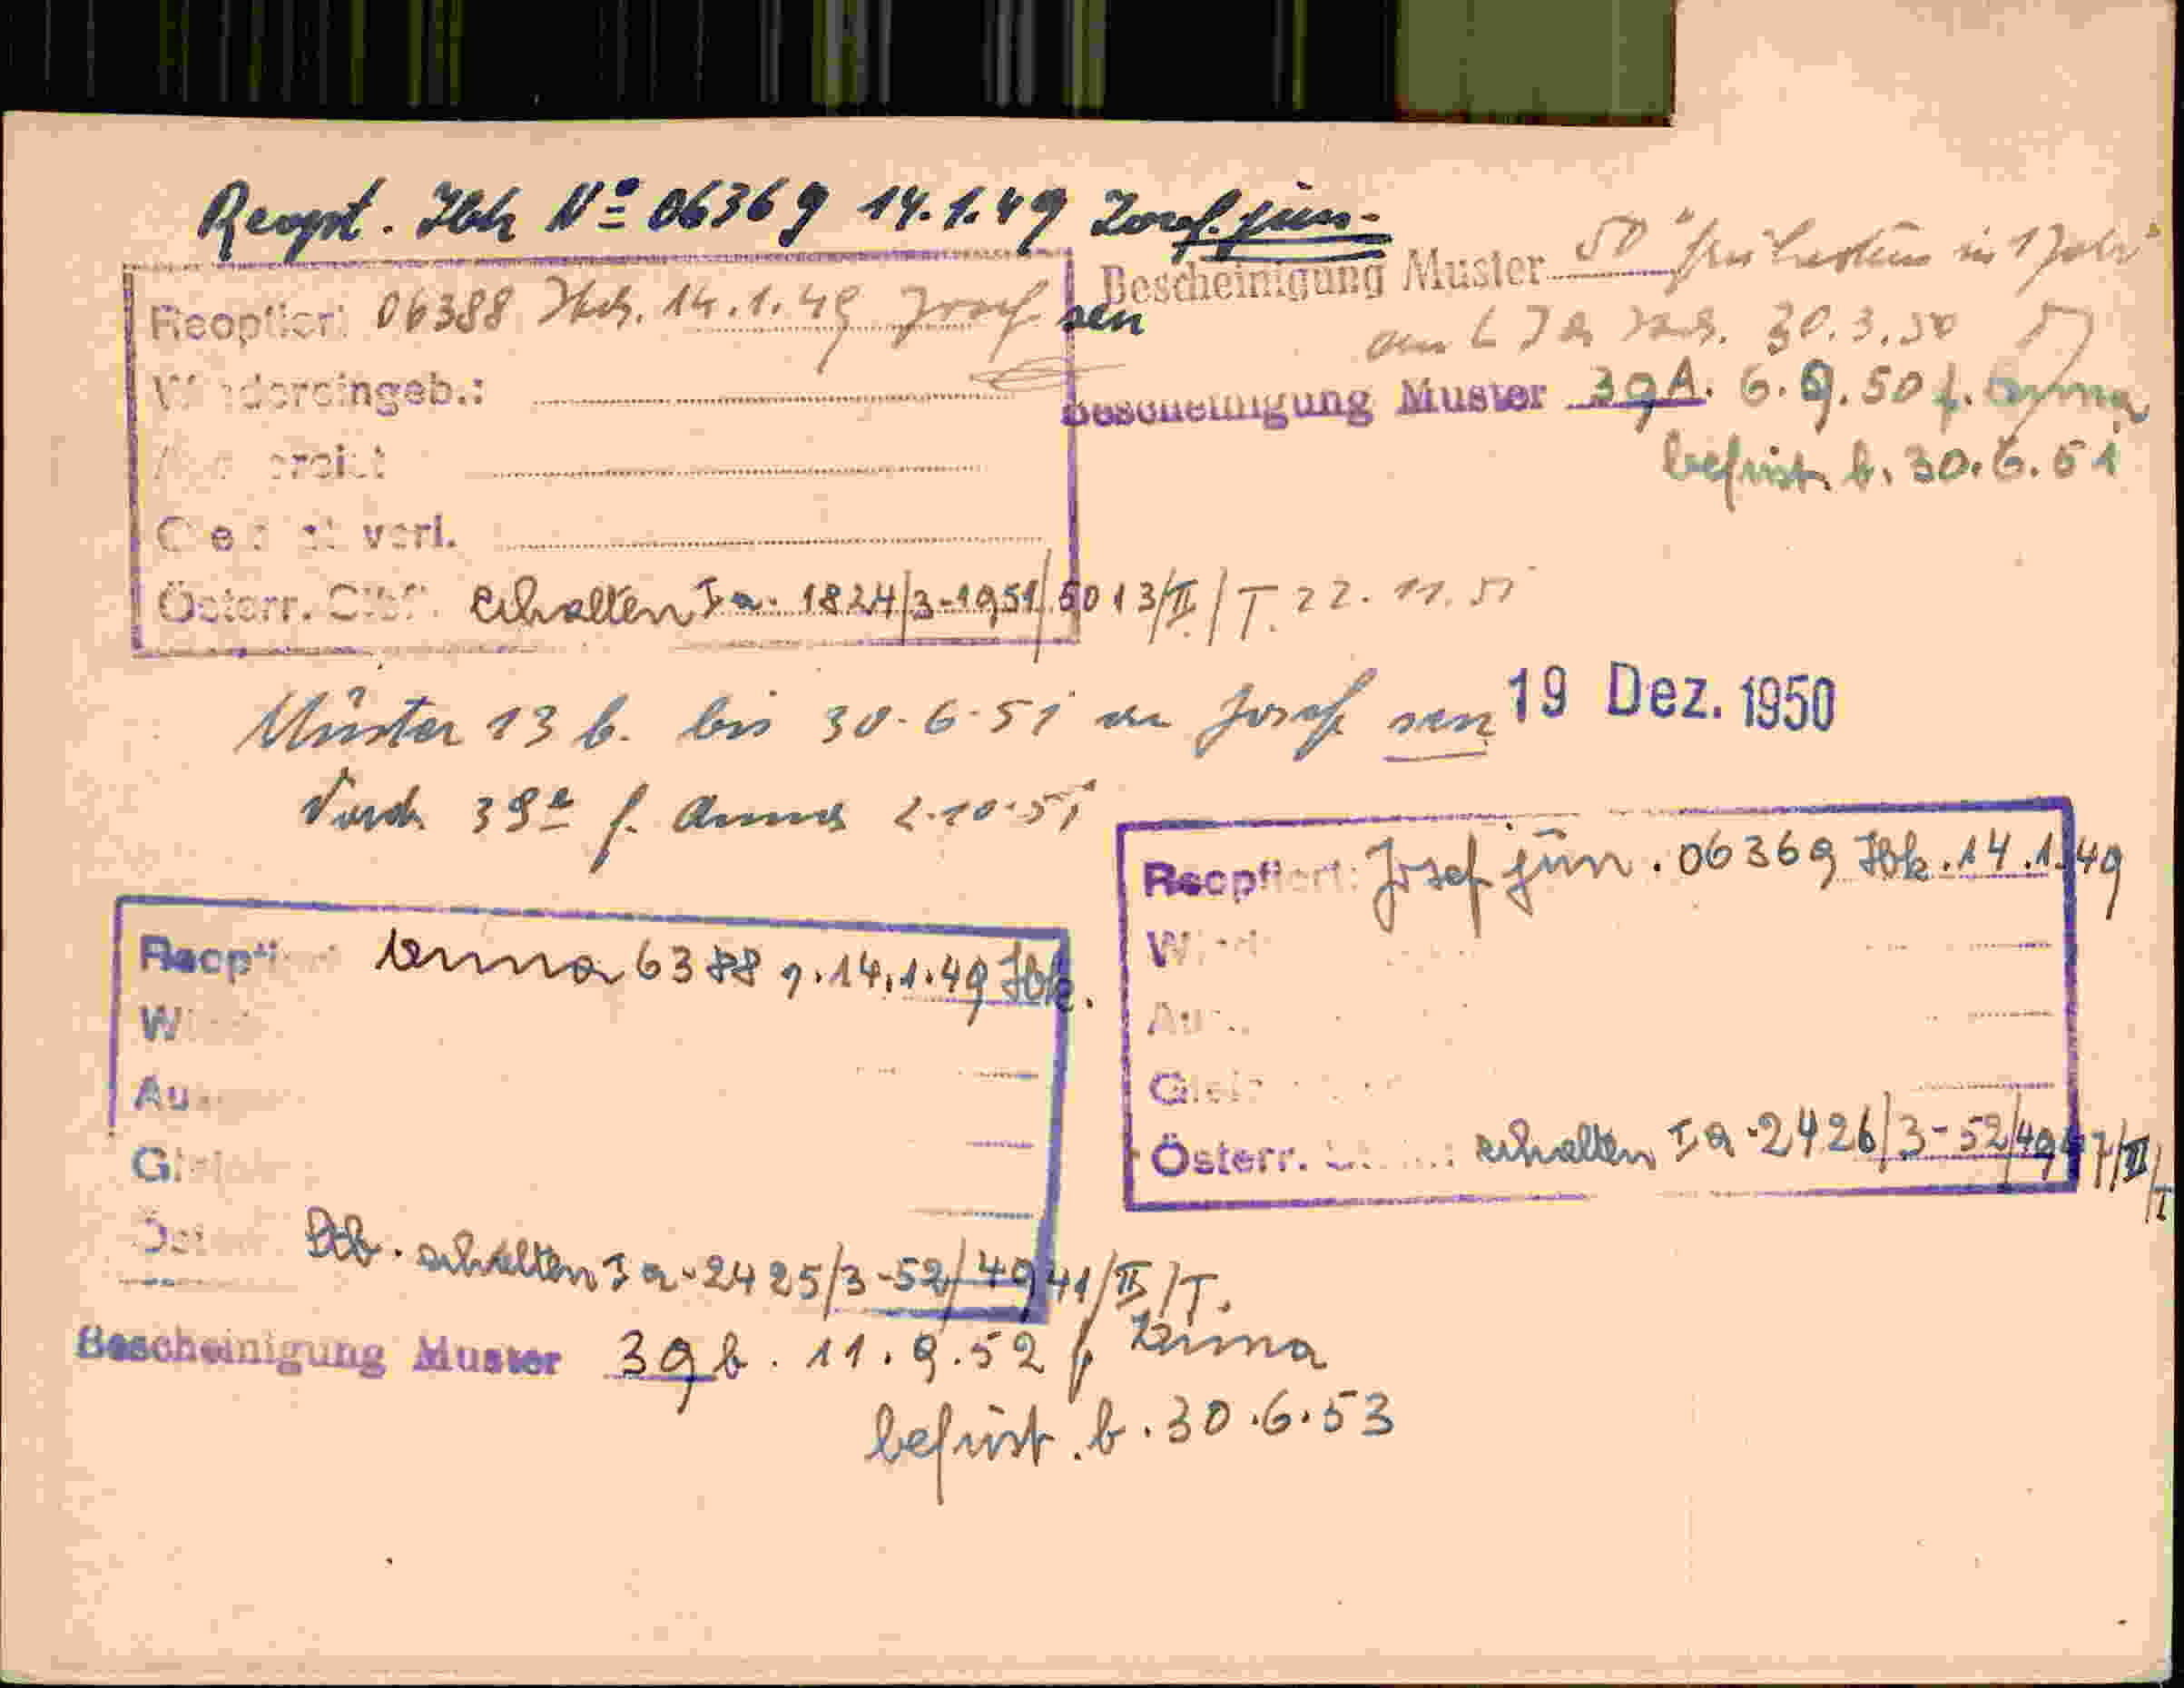 Reopt. Ibk Nº 06369 14.1.49 Josef. jun.
Bescheinigung Muster 50 "
in 1 Jahr"
Reoptiert 06388 Ibk. 14.1.49 Josef sen
30.3.50
Wiedereingeb.:
Bescheinigung Muster 39A. 6.9.50 f. Anna
befrist. b. 30.6.51
verl.
Österr. Stb. erhalten Ia-1824/3-1951/5013/II/T. 22.11.51
Muster 13 b. bis 30.6.51 an Josef sen 19 Dez. 1950
39a f. Anna 2.10.51
Reoptiert: Josef jun. 06369 Ibk. 14.1.49
Reopti Anna 6388 v. 14.1.49 Ibk.
W
W
Au
Au
G
Österr. erhalten Ia-2426/3-52/4947/II/T
Stb. erhalten Ia-2425/3-52/4941/II/T.
Bescheinigung Muster 39b. 11.9.52 f. Anna
befrist. b. 30.6.53